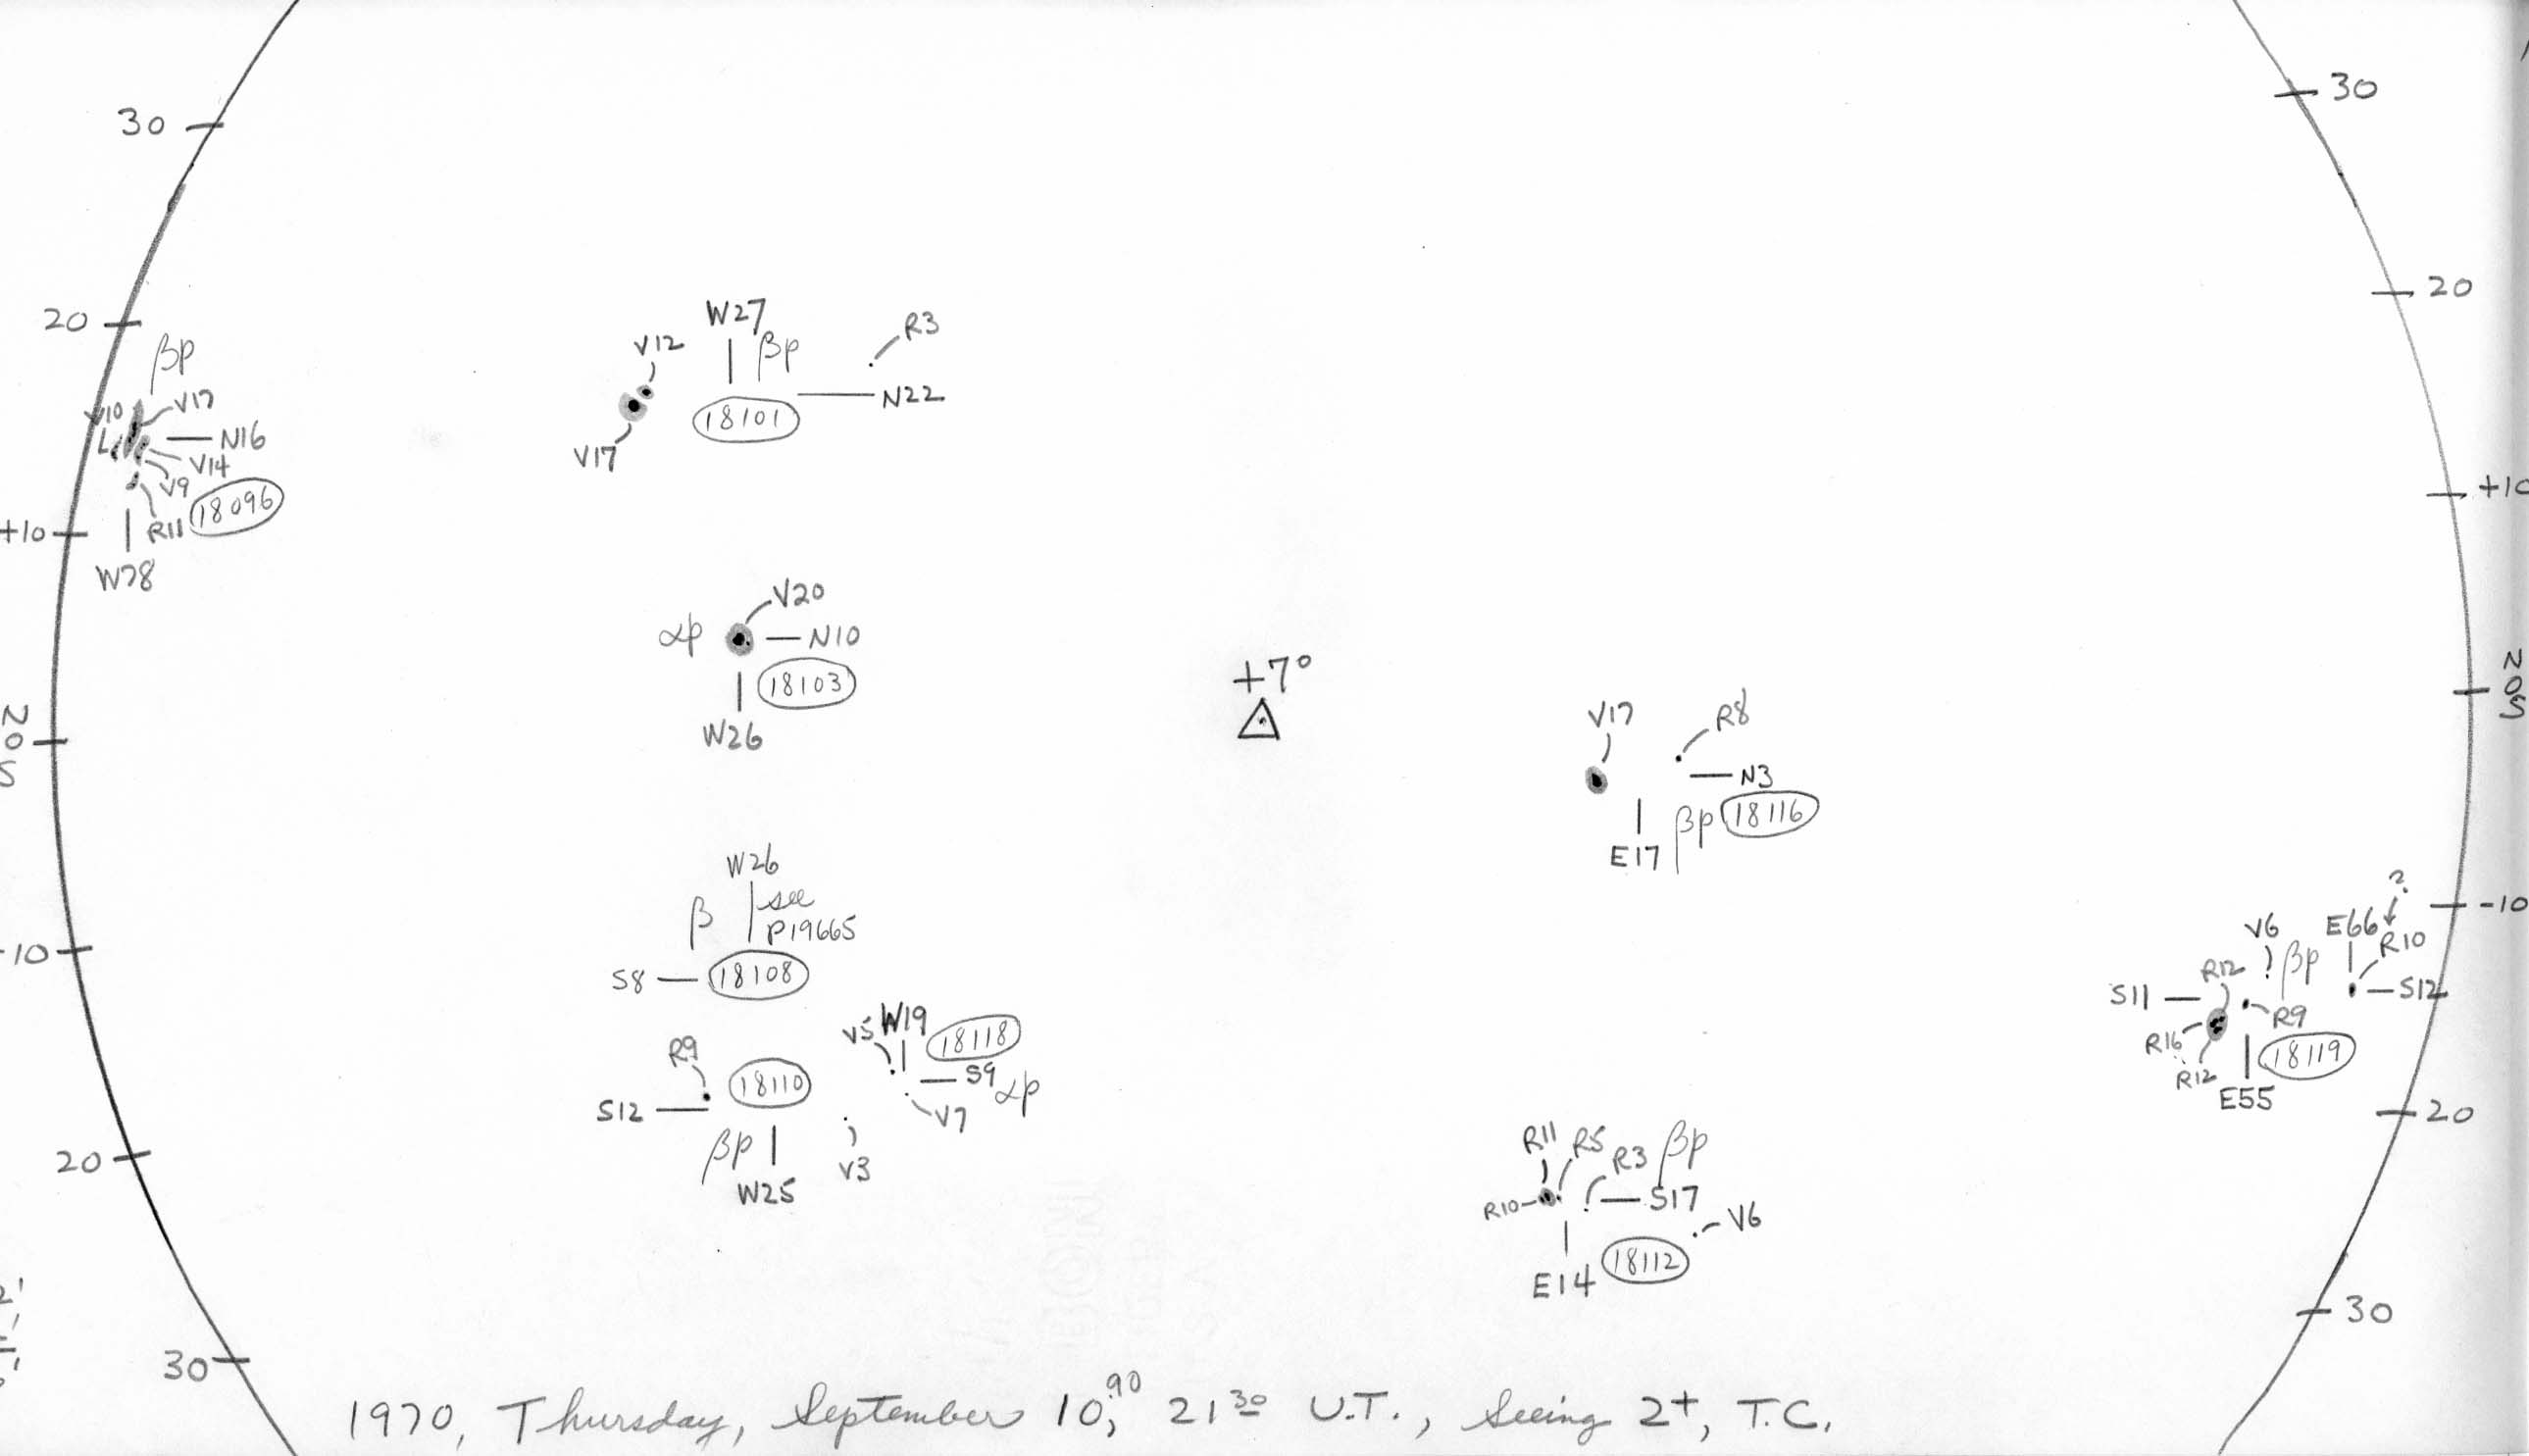 30
30
20
20
W27
βp
R3
V12
N22
18101
V17
βp
V10
V17
L
N16
V14
V9
18096
R11
+10
W78
+10
V20
αp
N10
18103
W26
+7°
N
0
S
N
0
S
V17
R8
N3
βp
18116
E17
W26
β
see
P19665
S8
18108
-10
-10
?
V6
E66
R10
βp
R12
S11
S12
R9
R16
18119
R12
E55
V5
W19
18118
R9
S9
αp
18110
S12
V7
βp
V3
W25
20
20
R11
R5
R3
βp
R10
S17
V6
18112
E14
30
30
1970, Thursday, September 10,.90 21 30 U.T., Seeing 2+, T.C.